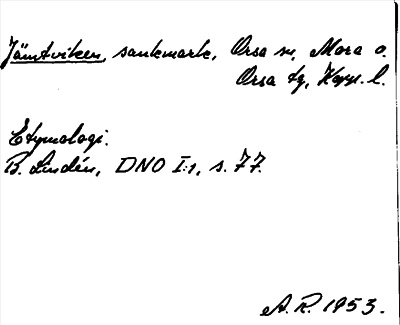 Jämtviken, sankmark, Orsa sn, Mora o.
Orsa tg, Kopp. l.
Etymologi.
B. Lindén, DNO I:1, s. 77.
A. R. 1953.